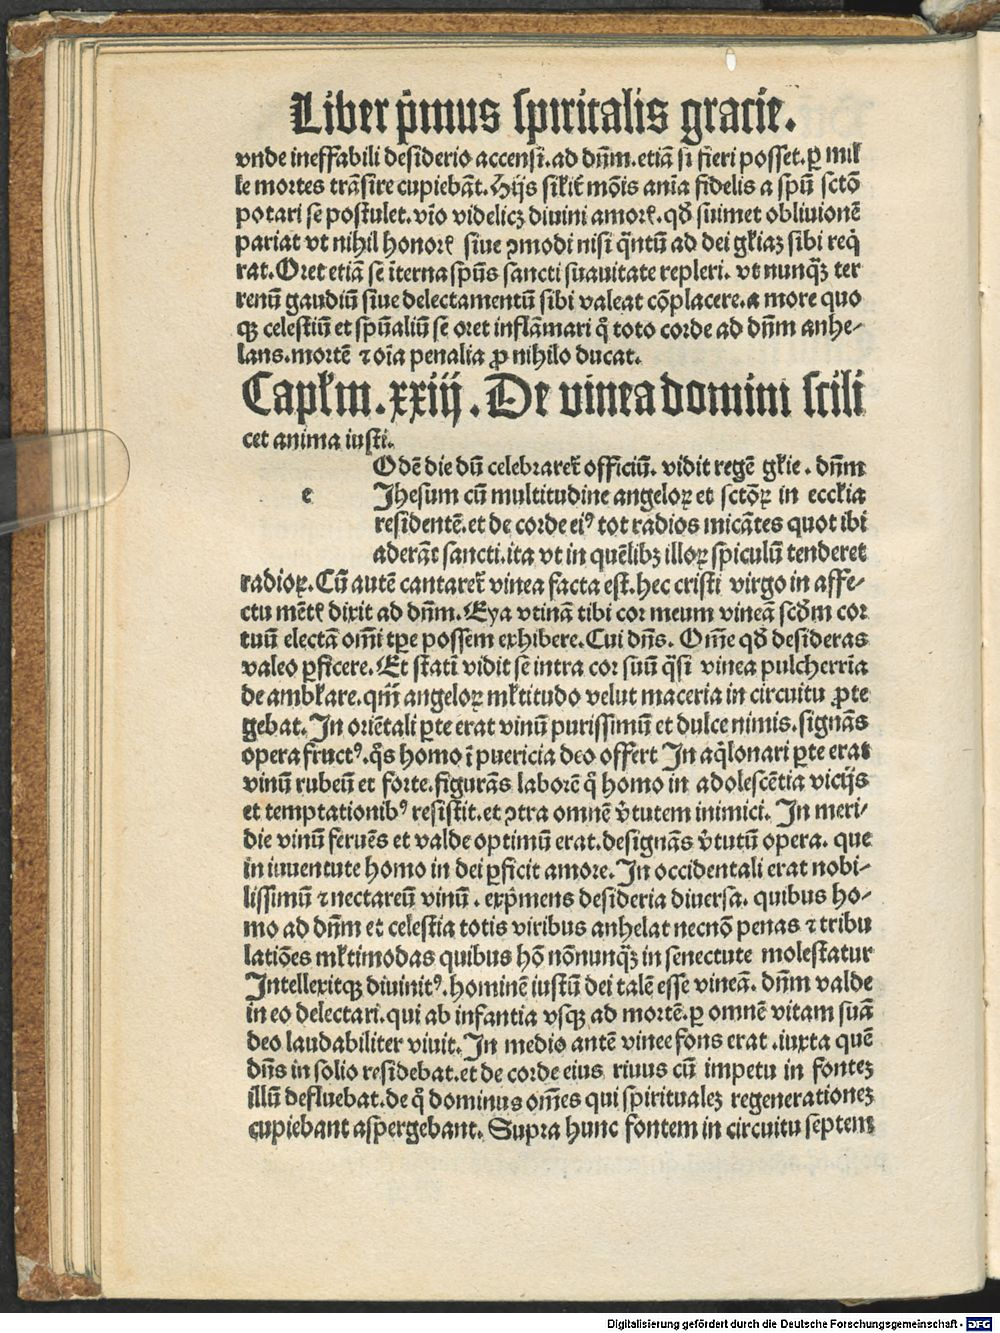 Liber p̄mus spiritalis gracie.
vnde ineffabili desiderio accensi. ad dn̄m. etiā si fieri posset. ꝑ mil
le mortes trāsire cupiebāt. Hijs sil'it̄ mōis aīa fidelis a spū sctō
potari se postulet. vīo videlicꝫ diuini amorꝭ. qđ suimet obliuionē
pariat vt nihil honorꝭ siue ꝯmodi nisi q̄ntū ad dei gl'iaꝫ sibi req̇
rat. Oret etiā se īterna spūs sancti suauitate repleri. vt nunq̄ꝫ ter
renū gaudiū siue delectamentū sibi valeat cōplacere. a more quo
qꝫ celestiū et spūaliū se oret inflāmari q̊ toto corde ad dn̄m anhe⸗
lans. mortē ⁊ oīa penalia ꝓ nihilo ducat.
Capl'm. xxiij. De vinea domini scili
cet anima iusti.
Odē die dū celebraret̄ officiū. vidit regē gl'ie. dn̄m
e Jhesum cū multitudine angeloꝝ et sctōꝝ in eccl'ia
residentē. et de corde eiꝰ tot radios micātes quot ibi
aderāt sancti. ita vt in quēlibꝫ illoꝝ spiculū tenderet
radioꝝ. Cū autē cantaret̄ vinea facta est. hec cristi virgo in affe⸗
ctu mētꝭ dixit ad dn̄m. Eya vtinā tibi cor meum vineā scđm cor
tuū electā om̄i tp̄e possem exhibere. Cui dn̄s. Om̄e qđ desideras
valeo ꝑficere. Et statī vidit se intra cor suū q̄si vinea pulcherria
de ambl'are. qm̄ angeloꝝ ml'titudo velut maceria in circuitu ꝓte
gebat. In oriētali ꝑte erat vinū purissimū et dulce nimis. signās
opera fructꝰ. q̄s homo ī puericia deo offert In aq̇lonari ꝑte erat
vinū rubeū et forte. figurās laborē q̊ homo in adolescētia vicijs
et temptationibꝰ resistit. et ꝯtra omnē v̄tutem inimici. In meri⸗
die vinū feruēs et valde optimū erat. designās v̄tutū opera. que
in iuuentute homo in dei ꝑficit amore. In occidentali erat nobi⸗
lissimū ⁊ nectareū vinū. exp̄mens desideria diuersa. quibus ho⸗
mo ad dn̄m et celestia totis viribus anhelat necnō penas ⁊ tribu
latiōes ml'timodas quibus hō nōnunq̄ꝫ in senectute molestatur
Intellexitqꝫ diuinitꝰ. hominē iustū dei talē esse vineā. dn̄m valde
in eo delectari. qui ab infantia vsqꝫ ad mortē. ꝑ omnē vitam suā
deo laudabiliter viuit. In medio antē vinee fons erat. iuxta quē
dn̄s in solio residebat. et de corde eius riuus cū impetu in fonteꝫ
illū defluebat. de q̊ dominus om̄es qui spiritualeꝫ regenerationeꝫ
cupiebant aspergebant. Supra hunc fontem in circuitu septem
Digitalisierung gefördert durch die Deutsche Forschungsgemeinschaft - DFG